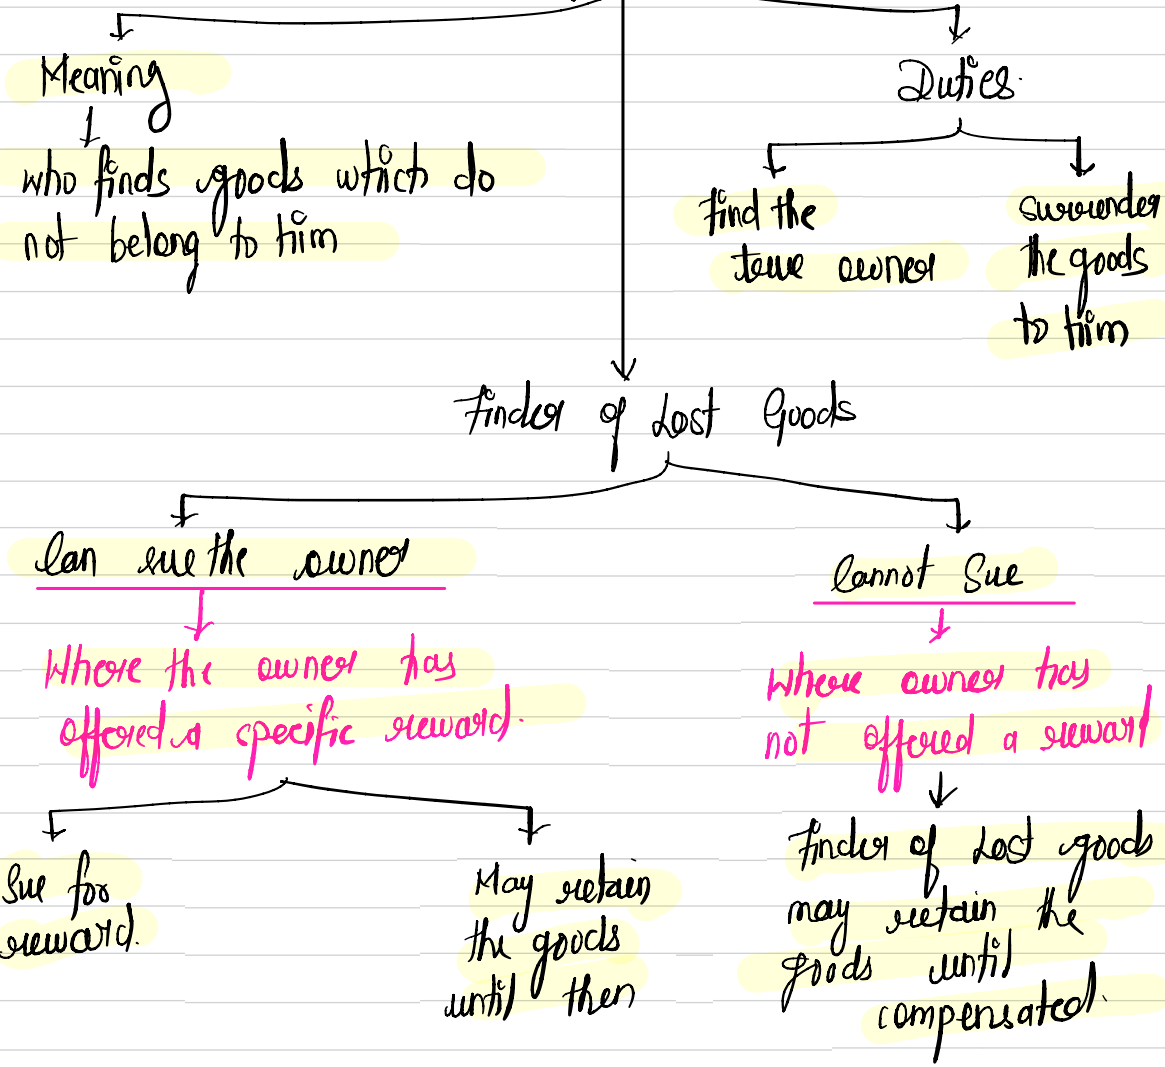 Meaning
who finds goods which do
not belong to him
Duties.
find the
true owner
surrender
the goods
to him
Finder of Lost Goods
Can sue the owner
Where the owner has
offered a specific reward.
Sue for
reward.
May retain
the goods
until then
Cannot Sue
where owner has
not offered a reward
Finder of Lost goods
may retain the
goods until
compensated.